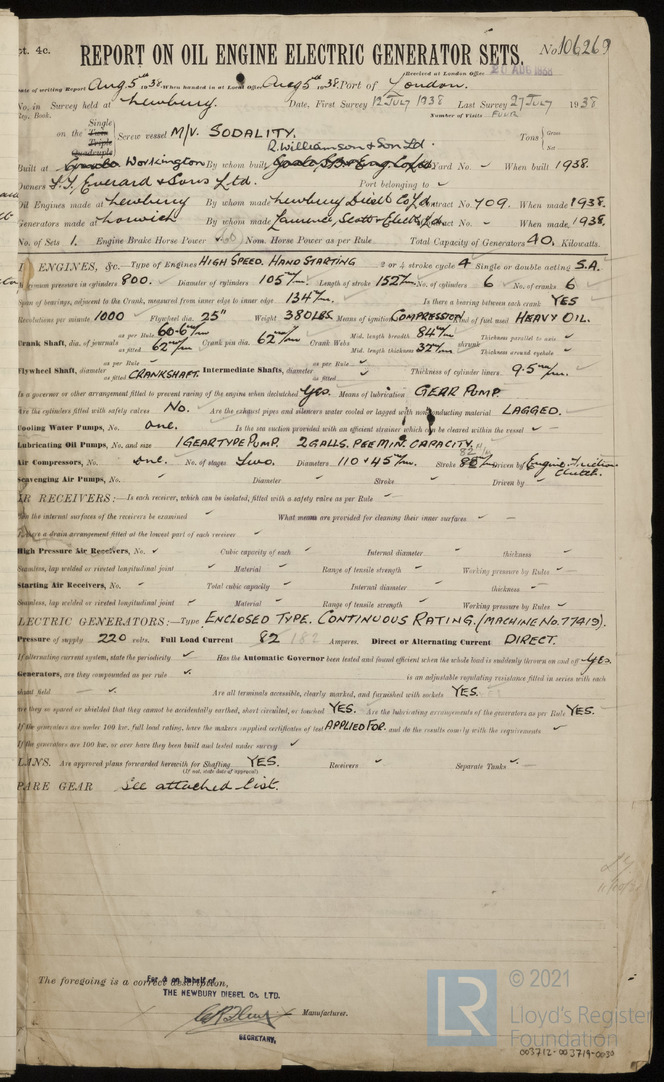 pt. 4c.
REPORT ON OIL ENGINE ELECTRIC GENERATOR SETS. No. 106269
Received at London Office 20 AUG 1938
Date of writing Report Aug. 5th 1938. When handed in at Local Office Aug 5th 1938. Port of London.
No. in Survey held at Newbury. Date, First Survey 12 JULY 1938 Last Survey 27 JULY 1938
Reg. Book. Number of Visits FOUR
Single
on the Twin Triple Quadruple Screw vessel M/V. SODALITY. Tons Gross Net
R. Williamson & Son Ld.
Built at Workington By whom built Yard No. - When built 1938.
Owners F. T. Everard & Sons Ltd. Port belonging to
Oil Engines made at Newbury By whom made Newbury Diesel Co Ld. Contract No. 709. When made 1938.
Generators made at Norwich By whom made Laurence, Scott & Elect. Ld. Contract No. - When made 1938.
No. of Sets 1. Engine Brake Horse Power 60 Nom. Horse Power as per Rule Total Capacity of Generators 40. Kilowatts.
ENGINES, &c.—Type of Engines HIGH SPEED. HAND STARTING 2 or 4 stroke cycle 4 Single or double acting S.A.
Maximum pressure in cylinders 800. Diameter of cylinders 105 m/m. Length of stroke 152 m/m. No. of cylinders 6 No. of cranks 6
Span of bearings, adjacent to the Crank, measured from inner edge to inner edge 134 m/m. Is there a bearing between each crank YES
Revolutions per minute 1000 Flywheel dia. 25" Weight 380 LBS. Means of ignition COMPRESSION Kind of fuel used HEAVY OIL.
Crank Shaft, dia. of journals as per Rule 60.6 m/m as fitted 62 m/m Crank pin dia. 62 m/m Crank Webs Mid. length breadth 84 m/m Mid. length thickness 32 m/m shrunk Thickness parallel to axis Thickness around eyehole
Flywheel Shaft, diameter as per Rule as fitted CRANKSHAFT. Intermediate Shafts, diameter as per Rule as fitted Thickness of cylinder liners 9.5 m/m.
Is a governor or other arrangement fitted to prevent racing of the engine when declutched Yes. Means of lubrication GEAR PUMP.
Are the cylinders fitted with safety valves No. Are the exhaust pipes and silencers water cooled or lagged with non-conducting material LAGGED.
Cooling Water Pumps, No. One. Is the sea suction provided with an efficient strainer which can be cleared within the vessel
Lubricating Oil Pumps, No. and size 1 GEAR TYPE PUMP. 2 GALLS. PER MIN. CAPACITY.
Air Compressors, No. One. No. of stages Two. Diameters 110 & 45 m/m. Stroke 82 m/m Driven by Engine. Friction Clutch.
Scavenging Air Pumps, No. Diameter Stroke Driven by
AIR RECEIVERS:—Is each receiver, which can be isolated, fitted with a safety valve as per Rule
Can the internal surfaces of the receivers be examined What means are provided for cleaning their inner surfaces
Is there a drain arrangement fitted at the lowest part of each receiver
High Pressure Air Receivers, No. Cubic capacity of each Internal diameter thickness
Seamless, lap welded or riveted longitudinal joint Material Range of tensile strength Working pressure by Rules
Starting Air Receivers, No. Total cubic capacity Internal diameter thickness
Seamless, lap welded or riveted longitudinal joint Material Range of tensile strength Working pressure by Rules
ELECTRIC GENERATORS:—Type ENCLOSED TYPE. CONTINUOUS RATING. (MACHINE No. 77419).
Pressure of supply 220 volts. Full Load Current 82 182 Amperes. Direct or Alternating Current DIRECT.
If alternating current system, state the periodicity Has the Automatic Governor been tested and found efficient when the whole load is suddenly thrown on and off Yes.
Generators, are they compounded as per rule is an adjustable regulating resistance fitted in series with each
shunt field Are all terminals accessible, clearly marked, and furnished with sockets YES.
Are they so spaced or shielded that they cannot be accidentally earthed, short circuited, or touched YES. Are the lubricating arrangements of the generators as per Rule YES.
If the generators are under 100 kw. full load rating, have the makers supplied certificates of test APPLIED FOR. and do the results comply with the requirements
If the generators are 100 kw. or over have they been built and tested under survey
PLANS. Are approved plans forwarded herewith for Shafting YES. Receivers Separate Tanks
(If not, state date of approval)
SPARE GEAR See attached list.
The foregoing is a correct description,
For & on behalf of
THE NEWBURY DIESEL Co. LTD.
Manufacturer.
SECRETARY.
LR
© 2021
Lloyd's Register
Foundation
003712-003719-0030